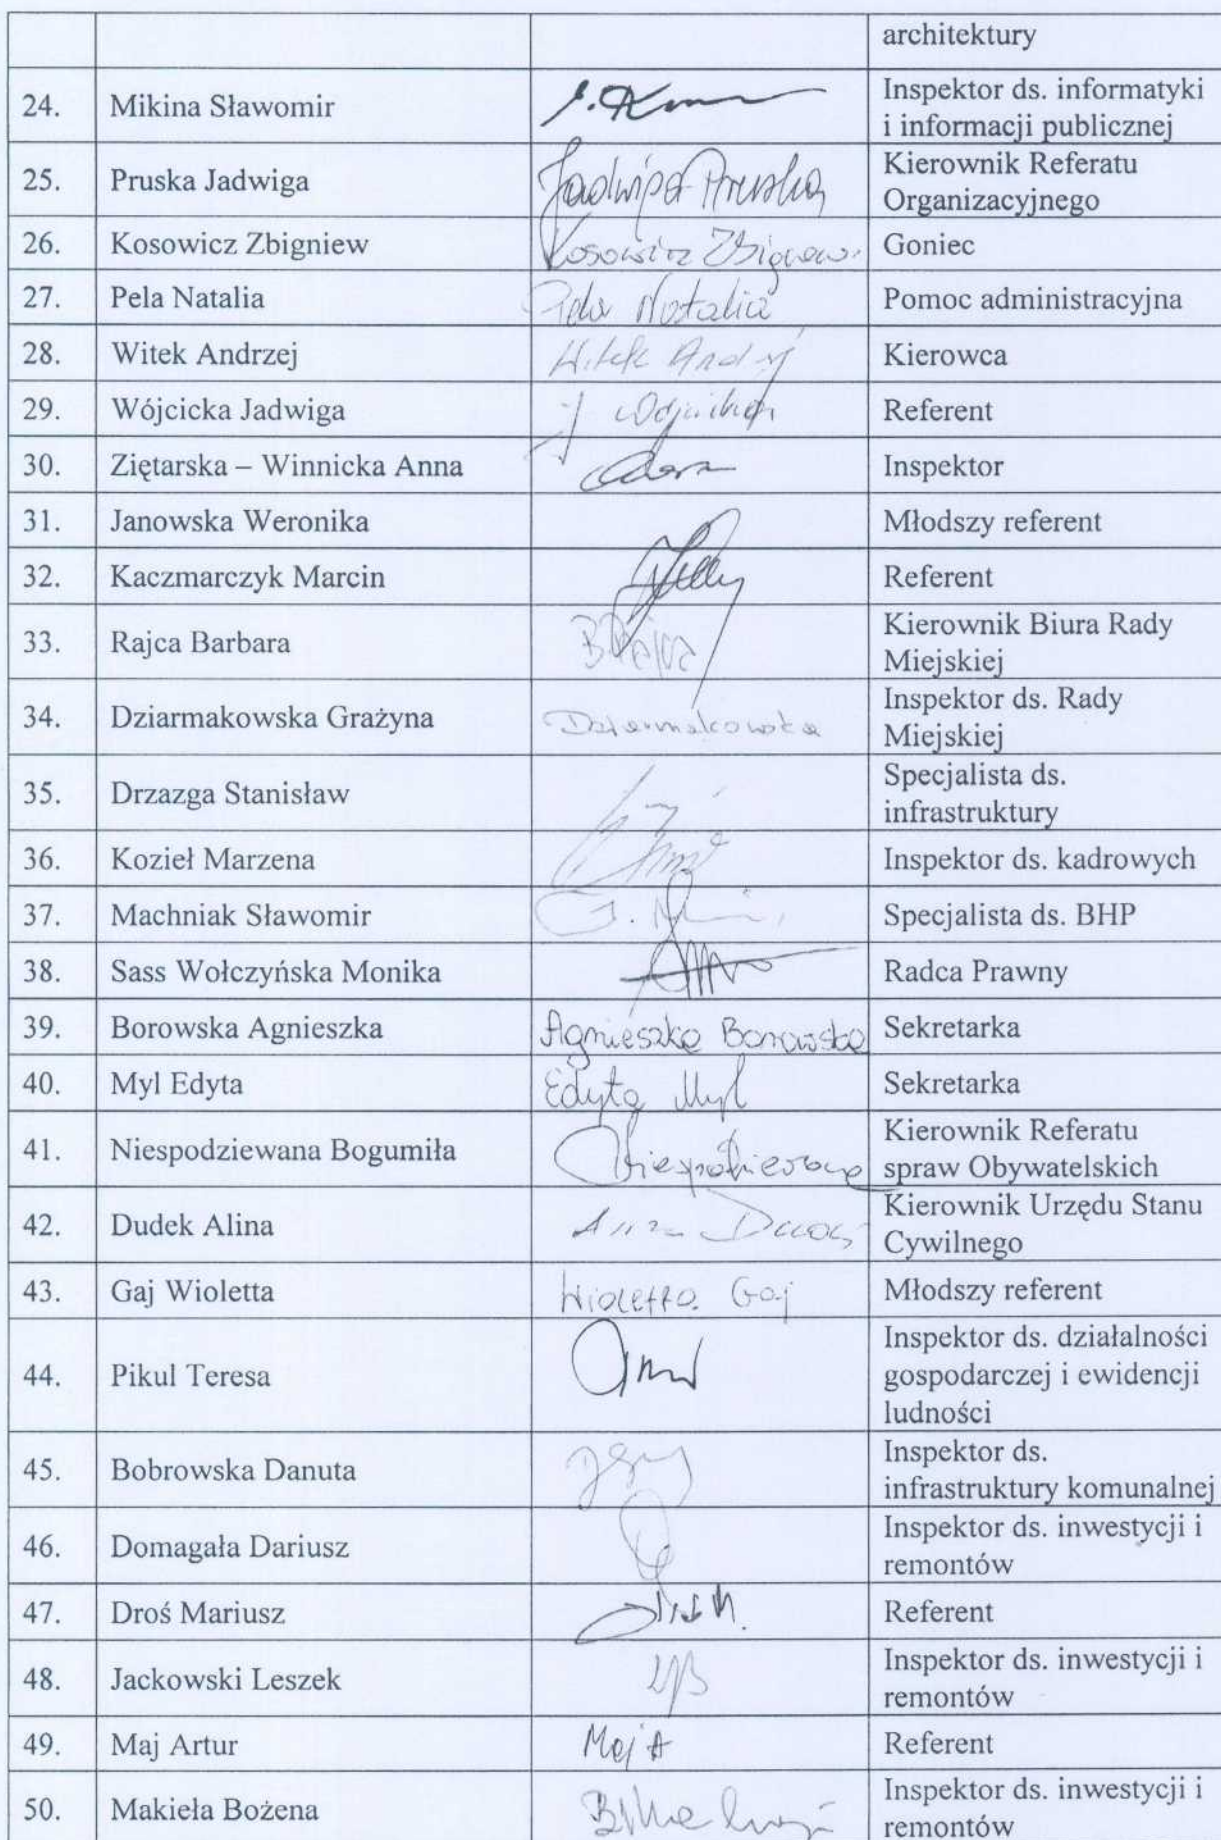 architektury
24. Mikina Sławomir Inspektor ds. informatyki
i informacji publicznej
25. Pruska Jadwiga Jadwiga Pruska Kierownik Referatu
Organizacyjnego
26. Kosowicz Zbigniew Kosowicz Zbigniew Goniec
27. Pela Natalia Pela Natalia Pomoc administracyjna
28. Witek Andrzej Witek Andrzej Kierowca
29. Wójcicka Jadwiga J Wójcicka Referent
30. Ziętarska – Winnicka Anna Inspektor
31. Janowska Weronika Młodszy referent
32. Kaczmarczyk Marcin Referent
33. Rajca Barbara B Rajca Kierownik Biura Rady
Miejskiej
34. Dziarmakowska Grażyna Dziarmakowska Inspektor ds. Rady
Miejskiej
35. Drzazga Stanisław Specjalista ds.
infrastruktury
36. Kozieł Marzena Inspektor ds. kadrowych
37. Machniak Sławomir Specjalista ds. BHP
38. Sass Wołczyńska Monika Radca Prawny
39. Borowska Agnieszka Agnieszka Borowska Sekretarka
40. Myl Edyta Edyta Myl Sekretarka
41. Niespodziewana Bogumiła Niespodziewana Kierownik Referatu
spraw Obywatelskich
42. Dudek Alina Kierownik Urzędu Stanu
Cywilnego
43. Gaj Wioletta Wioletta Gaj Młodszy referent
44. Pikul Teresa Inspektor ds. działalności
gospodarczej i ewidencji
ludności
45. Bobrowska Danuta Inspektor ds.
infrastruktury komunalnej
46. Domagała Dariusz Inspektor ds. inwestycji i
remontów
47. Droś Mariusz Referent
48. Jackowski Leszek Inspektor ds. inwestycji i
remontów
49. Maj Artur Maj A Referent
50. Makieła Bożena Inspektor ds. inwestycji i
remontów